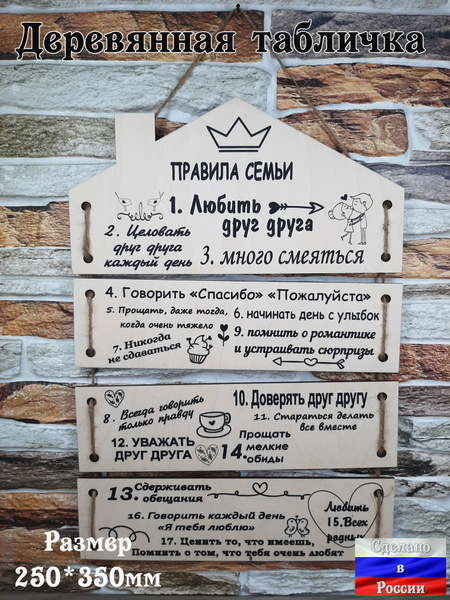 Деревянная табличка
ПРАВИЛА СЕМЬИ
1. Любить
друг друга
2. Целовать
друг друга
каждый день
3. много смеяться
4. Говорить «Спасибо» «Пожалуйста»
5. Прощать, даже тогда,
когда очень тяжело
6. начинать день с улыбок
7. Никогда
не сдаваться
9. помнить о романтике
и устраивать сюрпризы
8. Всегда говорить
только правду
10. Доверять друг другу
11. Стараться делать
все вместе
12. УВАЖАТЬ
ДРУГ ДРУГА
14. Прощать
мелкие
обиды
13. Сдерживать
обещания
16. Говорить каждый день
«Я тебя люблю»
Любить
15. Всех
родных
17. Ценить то, что имеешь,
Помнить о том, что тебя очень любят
Размер
250*350мм
Сделано
в
России